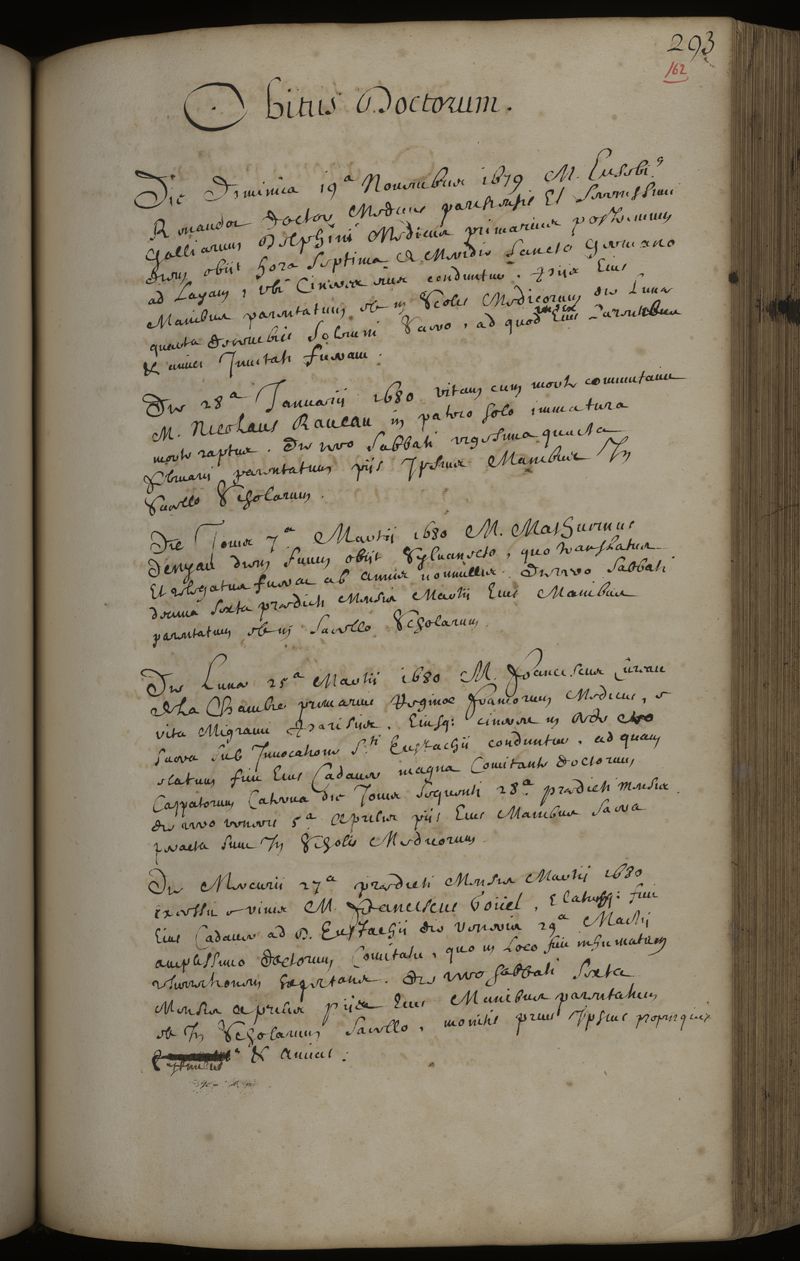 293
162
Obitus Doctorum.
Die Dominica 19a Novembris 1679 M. Eusebius
Renaudot Doctor Medicus parisiensis Et Serenissimi
Galliarum Delphini Medicus primarius postremum
diem obiit hora septima
ad Layam, ubi Cineres eius conduntur. piis Eius
Manibus parentatum est in Scolis Medicorum die Lunæ
quarta decembris solemni sacro, ad quod Eius parentes
& amici Invitati fuerant.
Die 28a Januarii 1680 vitam cum morte commutavit
M. Nicolaus Raveau in patrio solo immatura
morte raptus. Die vero Sabbati vigesima quarta
februarii parentatum piis Ipsius Manibus In
Sacello Scholarum.
Die Jovis 7a Martii 1680 M. Mathurinus
Denyau diem suum obiit Sylvanecto, quo translatus
Et relegatus fuerat ab annis nonnullis. Die vero Sabbati
decima sexta prædicti Mensis Martii Eius Manibus
parentatum est in Sacello Scholarum.
Die Lunæ 25a Martii 1680 M. Franciscus Cureau
de La Chambre primarius Reginæ Francorum Medicus, e
vita Migravit Parisiis. Eiusq: cineres in Æde
sacra sub Invocatione Sti Eustachii conduntur, ad quam
elatum fuit Eius Cadaver magna Comitante doctorum
Cappatorum Caterva die Jovis sequenti 28a prædicti mensis.
die vero veneris 5a Aprilis piis Eius Manibus sacra
peracta sunt In Scholis Medicorum.
Die Mercurii 27a prædicti Mensis Martii 1680
excessit e vivis M. Franciscus Boüet, Elatusq: fuit
Eius Cadaver ad D. Eustachii die Veneris 29a Martii
amplissimo doctorum Comitatu, quo in Loco fuit inhumatum
Die vero Sabbati sexta
Mensis Aprilis piis Eius Manibus parentatum
est In Scholarum Sacello, monitis prius Ipsius propinquis
& Amicis.